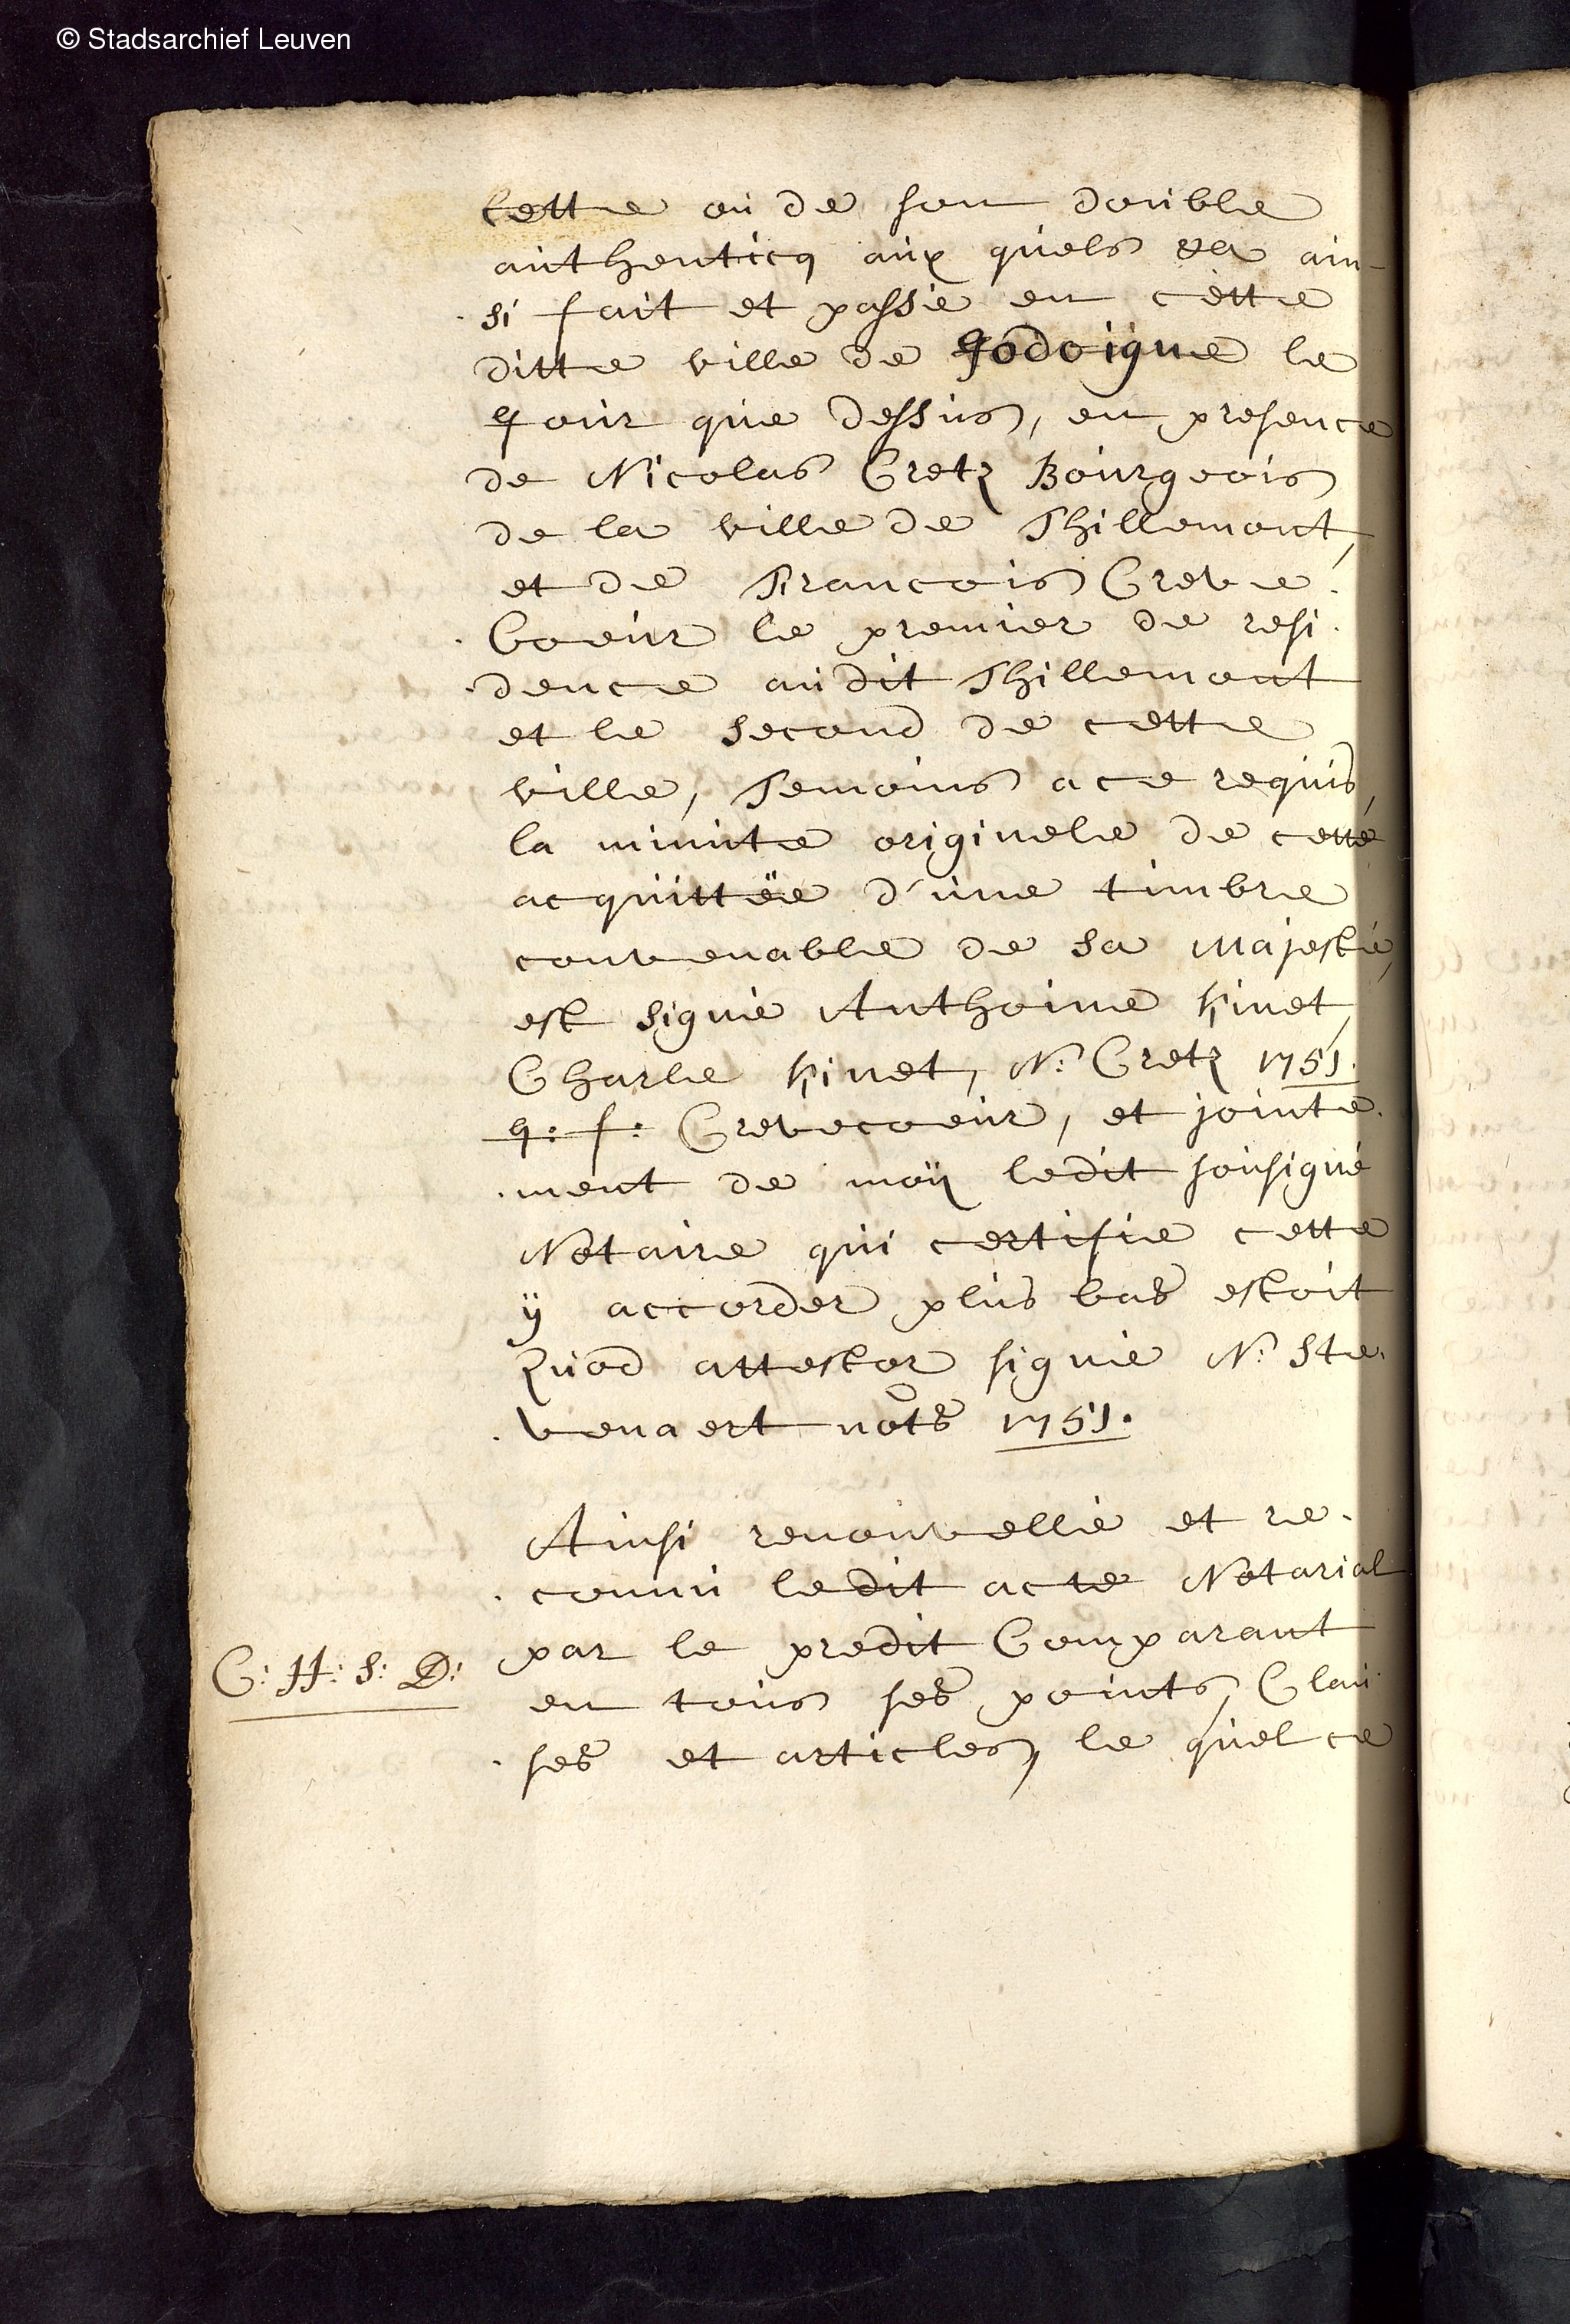 © Stadsarchief Leuven
cette ou de son double
authenticq aux quels &a ain-
si fait et passé en cette
ditte ville de Jodoigne le
Jour que dessus, en presence
de Nicolas Cretz Bourgeois
de la ville de Thillemont,
et de Francois Creve.
.Coeur le premier de resi.
.dence audit Thillemont
et le second de cette
ville, Temoins a ce requis,
la minute originele de cette
acquittëe d'une timbre
convenable de sa Majesté,
est signé Anthoine Kinet,
Charle Kinet, N: Cretz 1751.
J: f: Crevecoeur, et jointe.
.ment de moÿ ledit sousigné
Notaire qui certifie cette
ÿ accorder plus bas estoit
Quod attestor signé N: Ste.
.venaert nots 1751.
Ainsi renouvellé et re.
.connu ledit acte Notarial
par le predit Comparant
C: H: S: D:
en tous ses points, Clau
.ses et articles, le quel ce